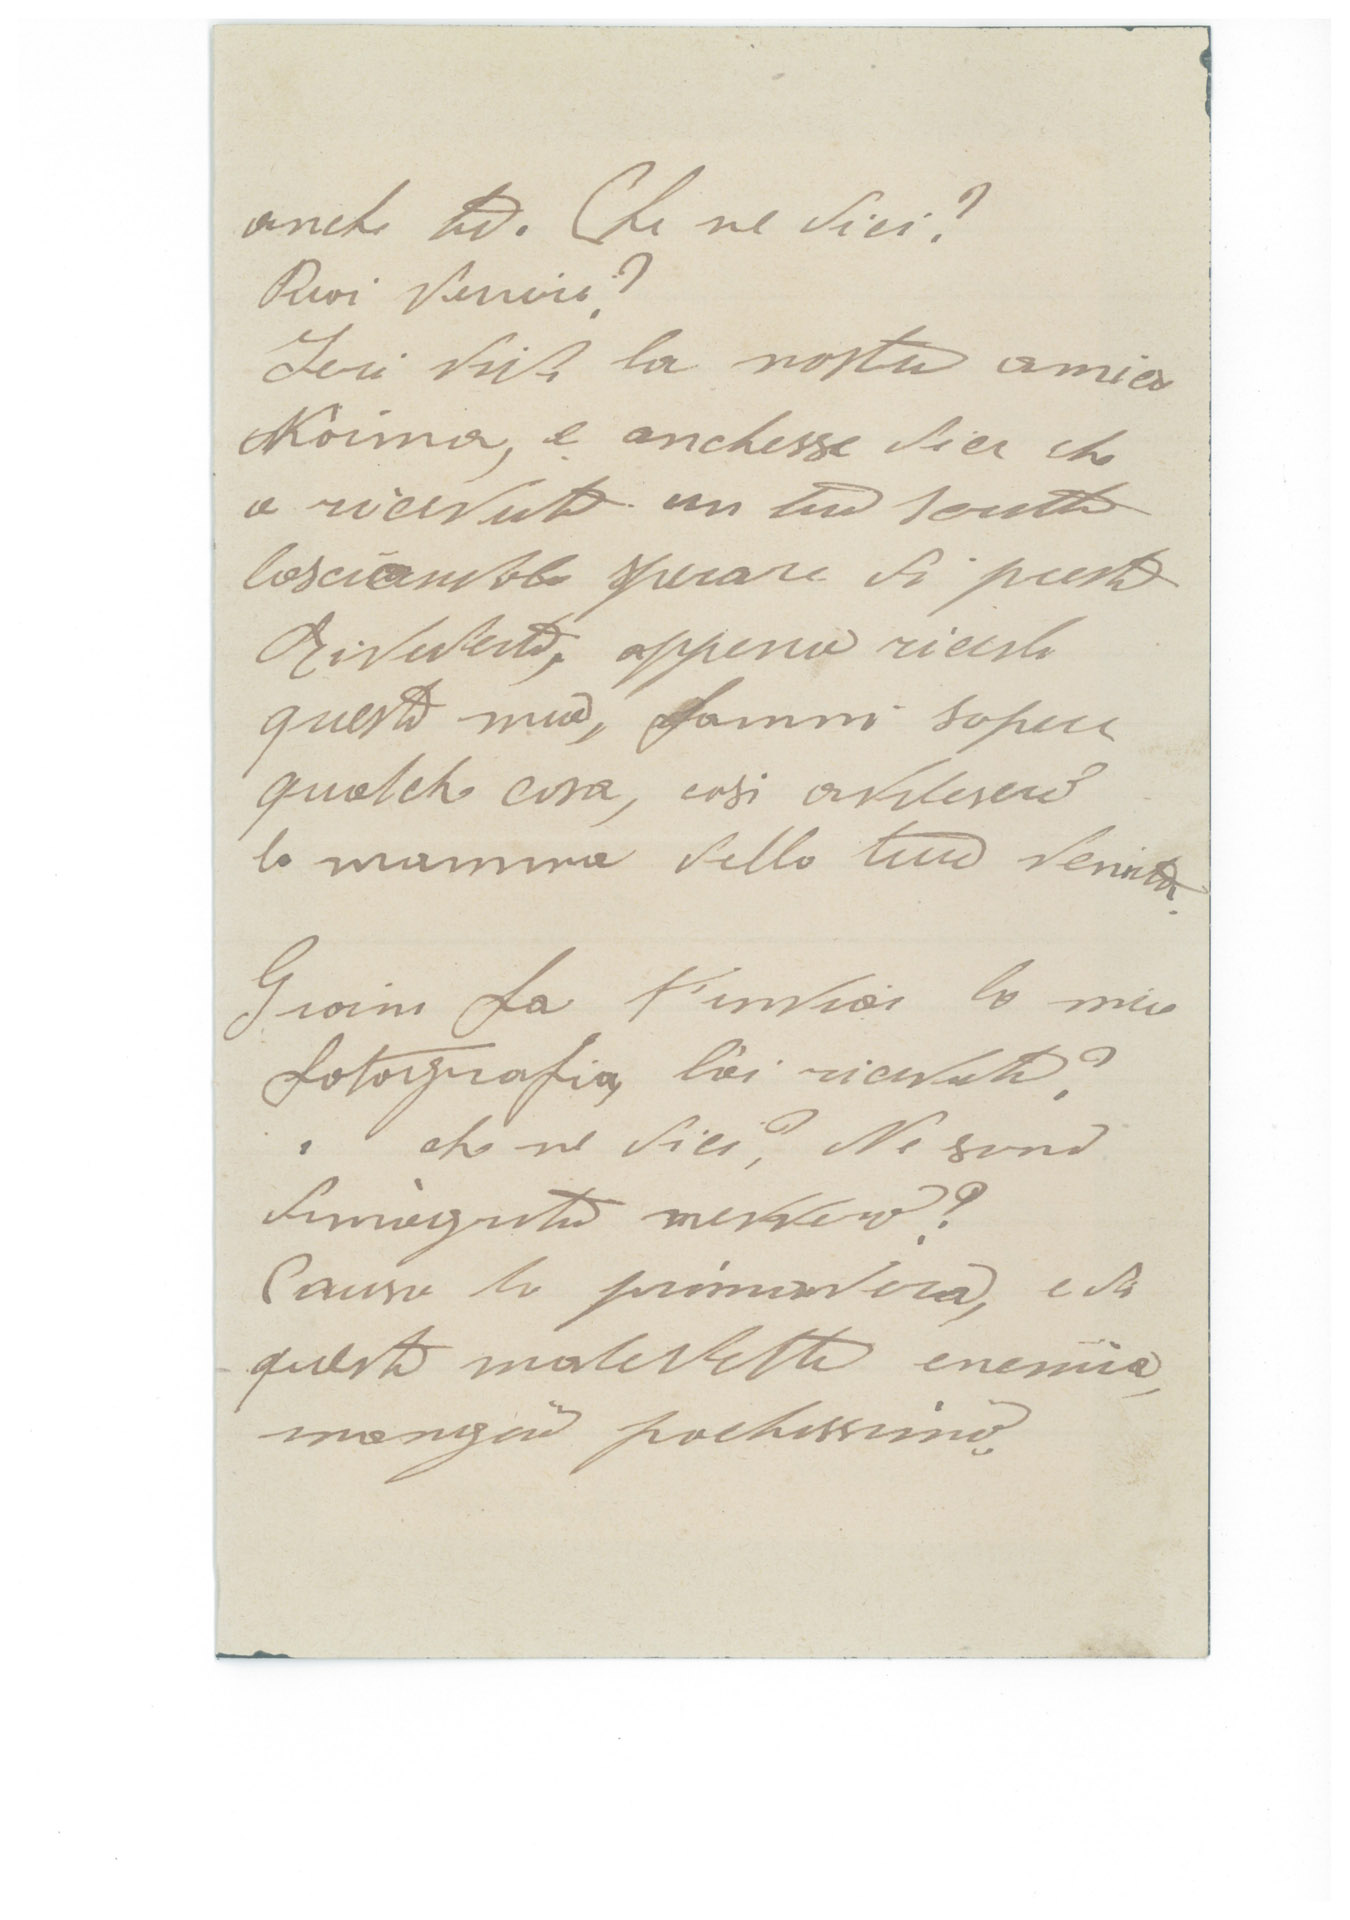 anche tu. Che ne dici?
Puoi venire?
Ieri vidi la nostra amica
e anchesse dice che
a ricevuto un tuo scritto
lasciandole sperare di presto
rivederti, appena ricevi
questo mio, fammi sapere
qualche cosa, cosi avviserò
la mamma della tua venuta.
Giorni fa t'inviai la mia
fotografia, l'ai ricevuta?
che ne dici? Ne sono
dimagrata nevvero?
Causa la primavera, e di
questa maledetta enemia,
mangio pochissimo.